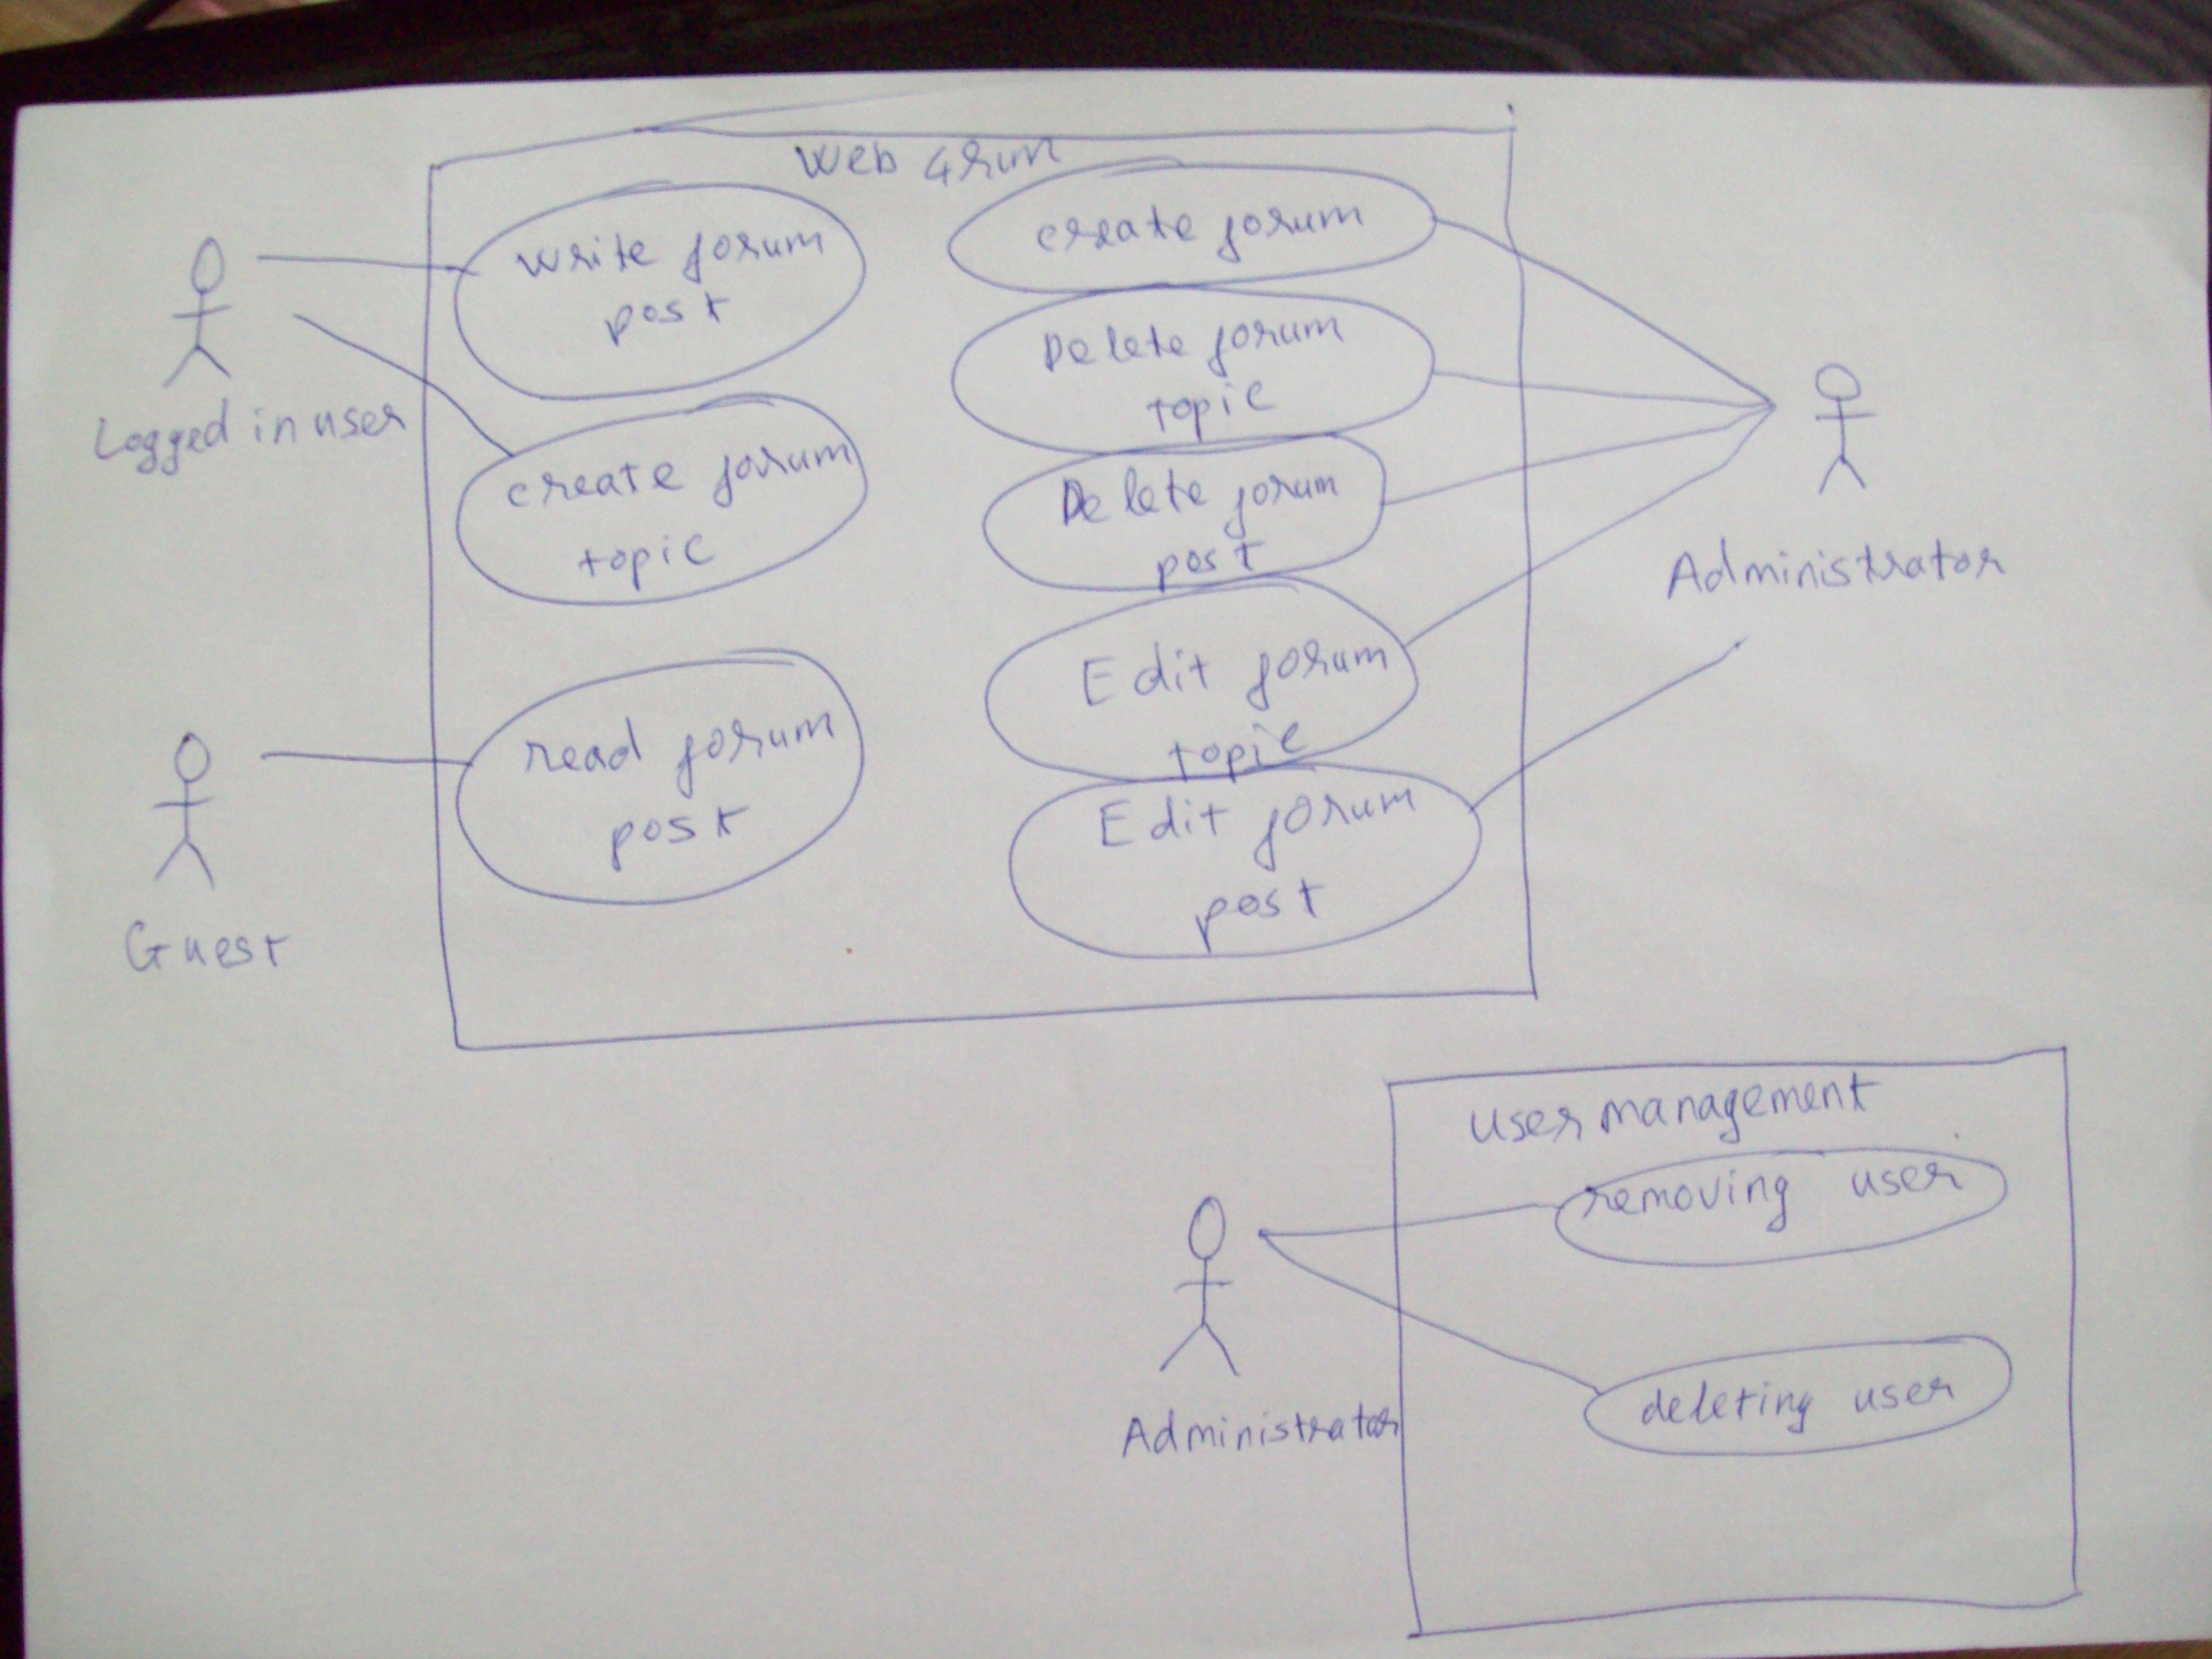 Web 4rum
write forum
post
create forum
topic
read forum
post
create forum
Delete forum
topic
Delete forum
post
Edit forum
topic
Edit forum
post
Logged in user
Guest
Administrator
user management
removing user
deleting user
Administrator